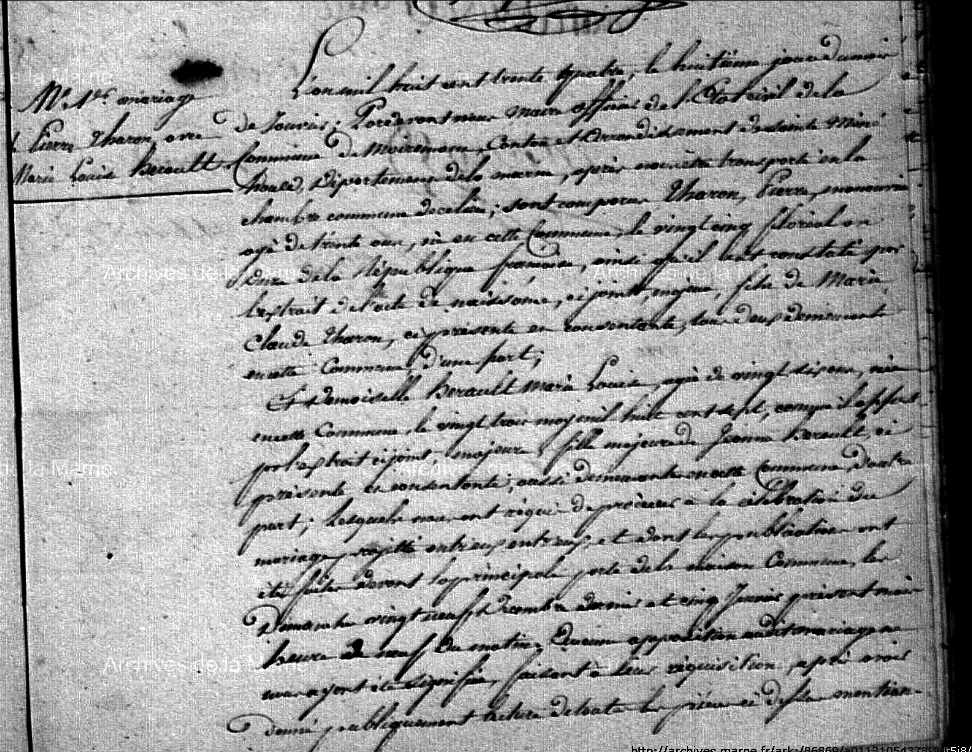 Mr No 1er mariage
Pierre Tharon avec
Marie Louise Berault
L'an mil huit cent trente quatre, le huitième jour du mois
de Janvier; Pardevant nous maire officier de l'Etat civil de la
Commune de Moiremont, Canton et Arrondissement de Sainte Mené
hould, Département de la marne, après nous être transporté en la
chambre commune de celieu; sont comparus Tharon, Pierre, manouvrier
agé de trente ans, né en cette Commune le vingt cinq floréal an
onze de la République française, ainsi qu'il est constaté par
l'extrait de l'acte de naissance, ci joint, majeur, fils de Marie
Claude Tharon, ci présente et consentante, tous deux demeurant
en cette Commune d'une part;
Et demoiselle Berault Marie Louise, agée de vingt six ans, née
en cette Commune le vingt trois mai mil huit cent sept, comme il appert
par l'extrait ci joint majeure, fille majeure de Jeanne Berault, ci
présente et consentante, aussi demeurante en cette Commune d'autre
part; lesquels nous ont requis de procéder à la célébration du
mariage projetté entre eux et dont les publications ont
été faites devant la principale porte de la maison Commune, les
Dimanche vingt neuf Décembre dernier et cinq Janvier présent mois
heure de neuf du matin. Aucune opposition audit mariage ne
nous ayant été signifiée, faisant à leur réquisition, après avoir
donné publiquement lecture de toutes les pièces ci dessus mention-
Archives de la Marne
http://archives.marne.fr/ark:/86869/